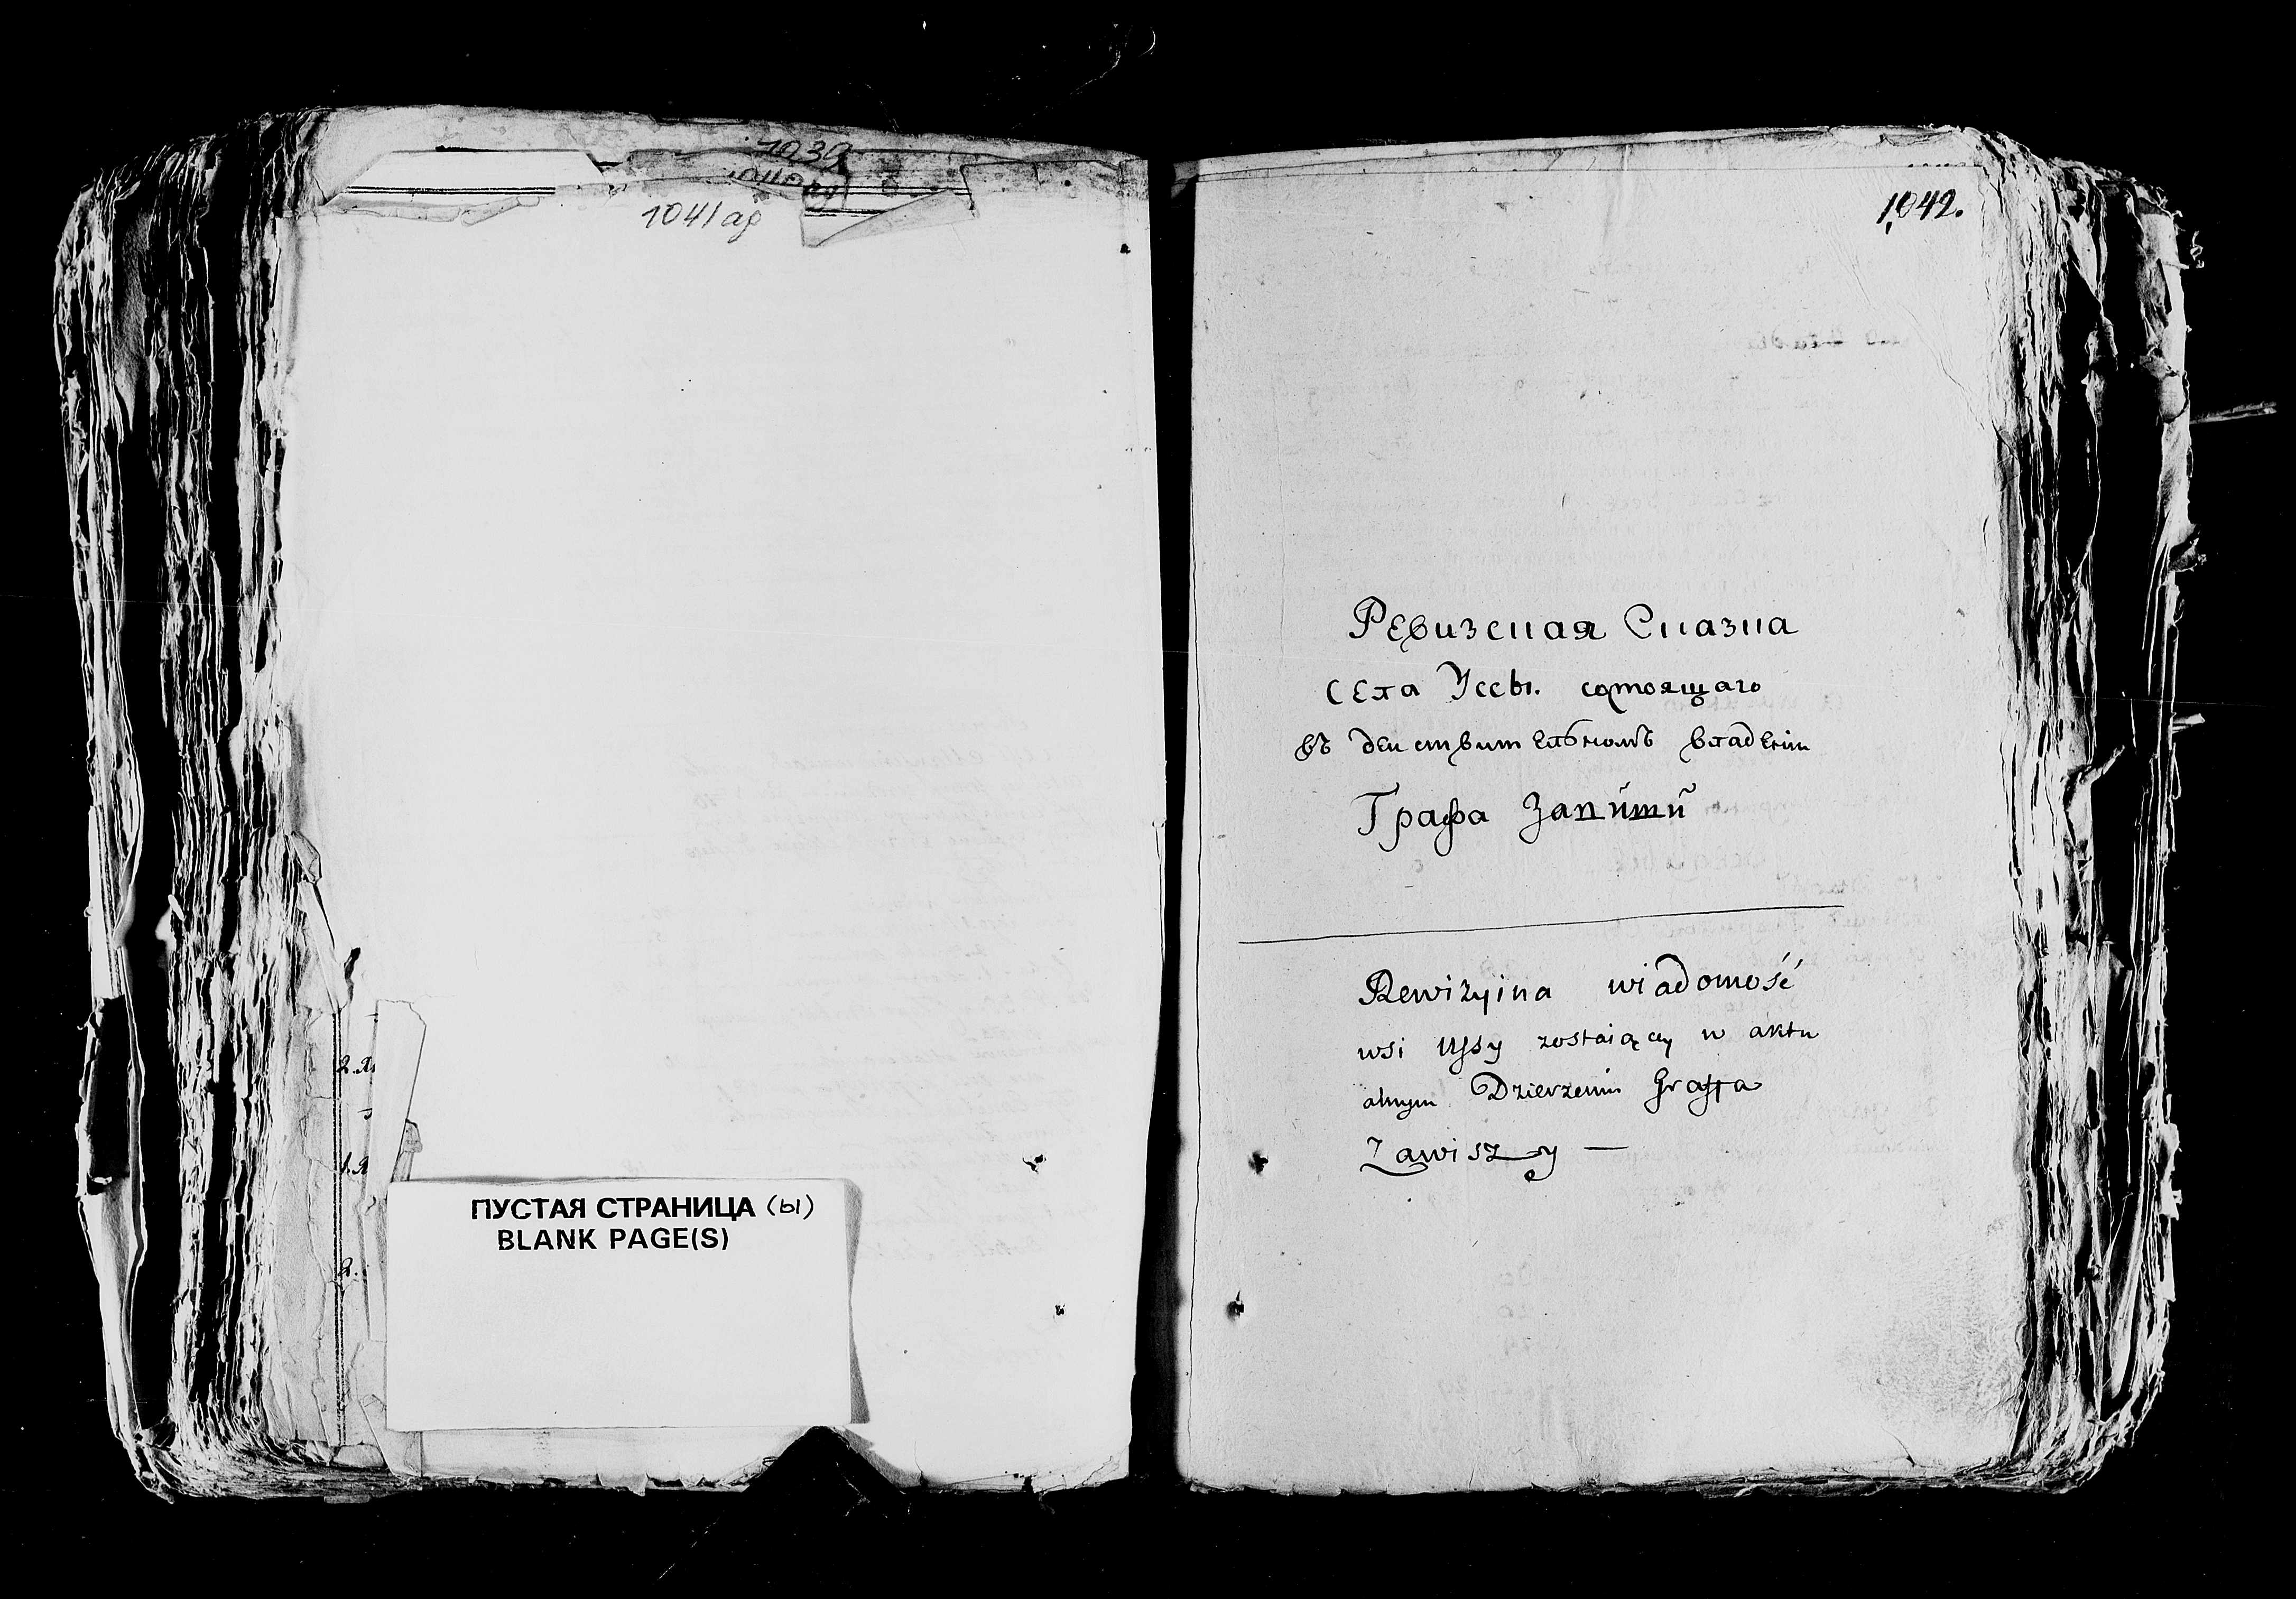 1039
1040
1041 ад
ПУСТАЯ СТРАНИЦА (ы)
BLANK PAGE(S)
1042.
Ревизская Сказка
Села Уссы. состоящаго
въ деиствительномъ владенiи
Графа
Rewizyina wiadomość
wsi Ussy zostaiący w aktu
alnym Dzierzeniu Graffa
Zawiszy —